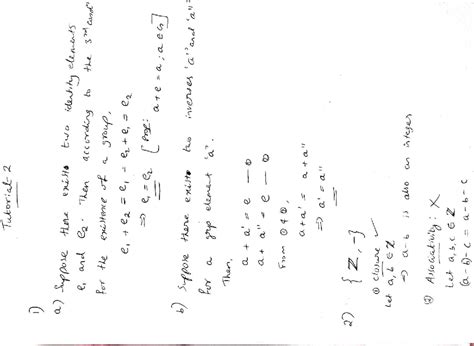 Tutorial - 2
1)
a) Suppose there exists two identity elements
e₁ and e₂. Then according to the 3rd
for the existence of a group,
e₁ + e₂ = e₁ = e₂ + e₁ = e₂
⇒ e₁ = e₂ [Prop: a + e = a ; a ∈ G]
b) Suppose there exists two inverses 'a'' and 'a'''
for a group element 'a'.
Then,
a + a' = e — ①
a + a'' = e — ②
From ① & ②,
a + a' = a + a''
⇒ a' = a''
2) {Z, -}
① Closure ✓
Let a, b ∈ Z
⇒ a - b is also an integer
② Associativity : X
Let a, b, c ∈ Z
(a - b) - c = a - b - c